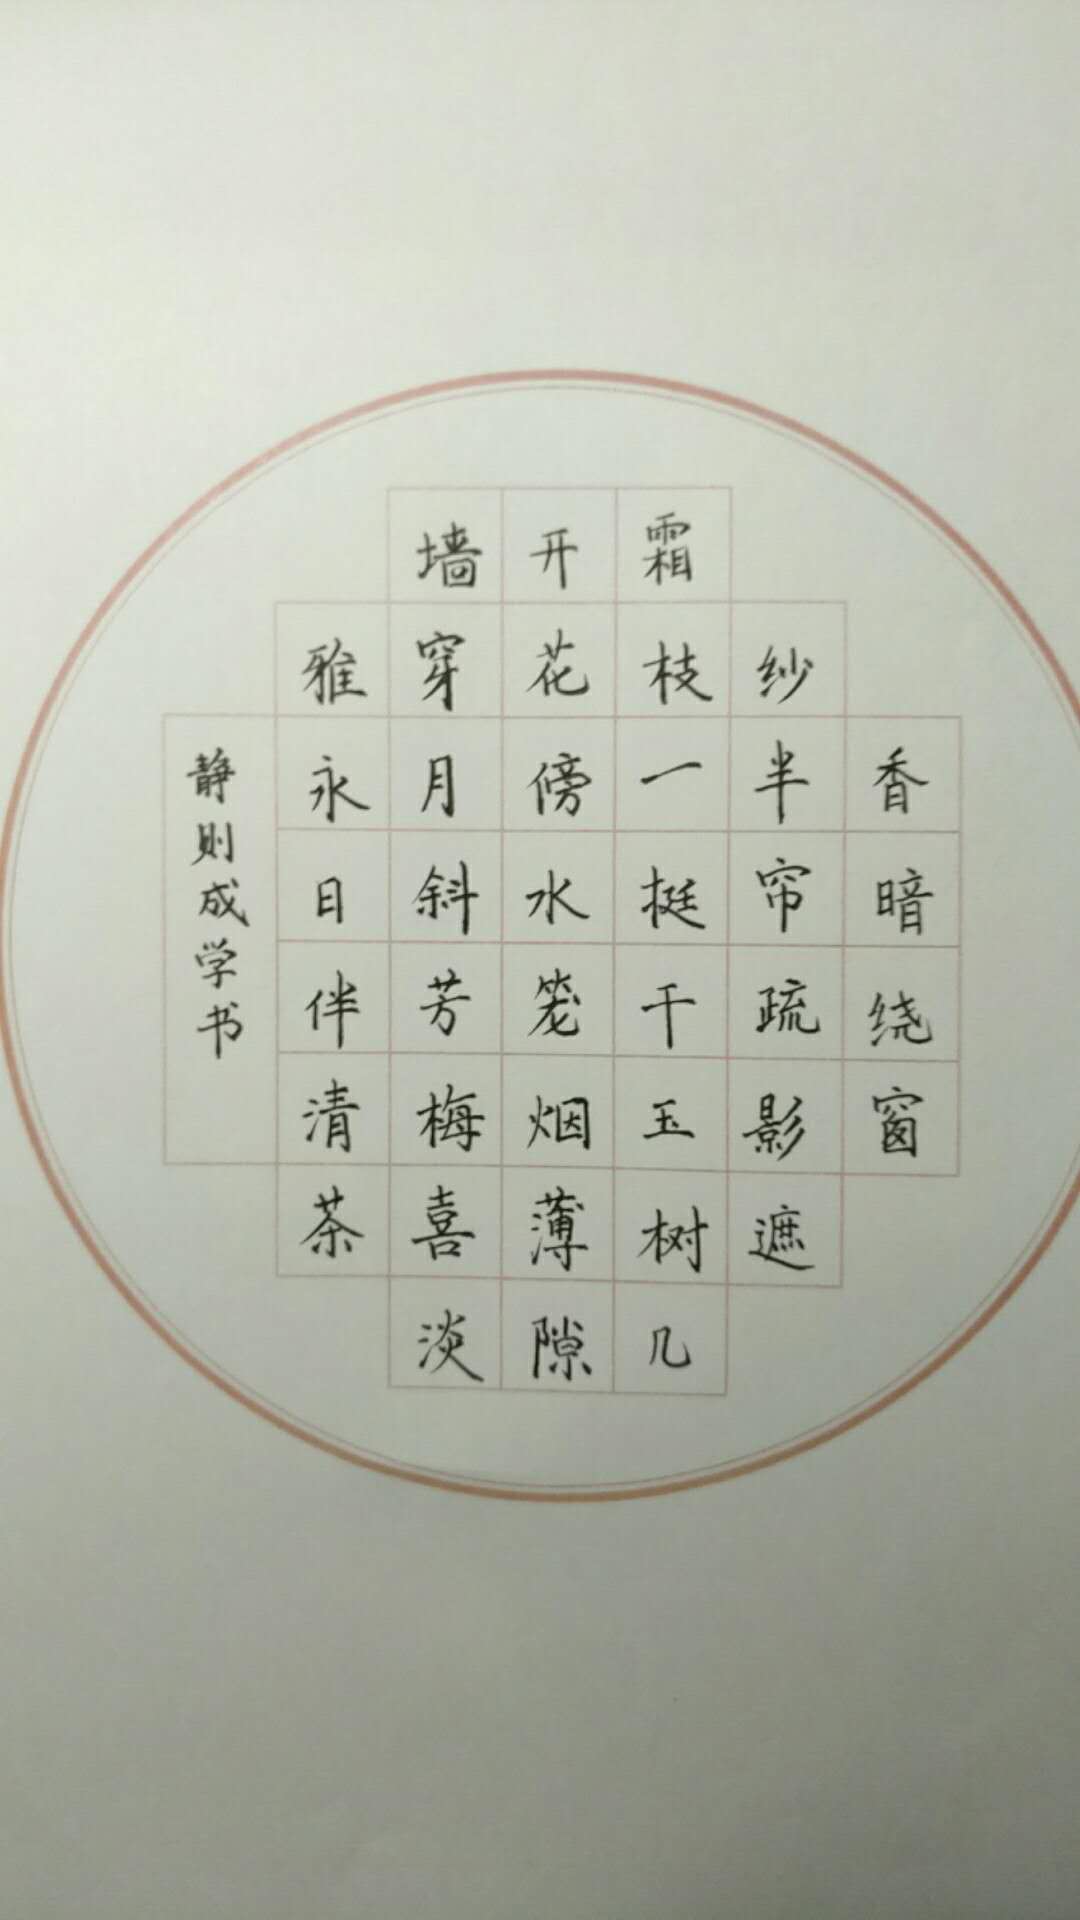 香暗绕窗
纱半帘疏影遮
霜枝一挺干玉树几
开花傍水笼烟薄隙
墙穿月斜芳梅喜淡
雅永日伴清茶
静则成学书